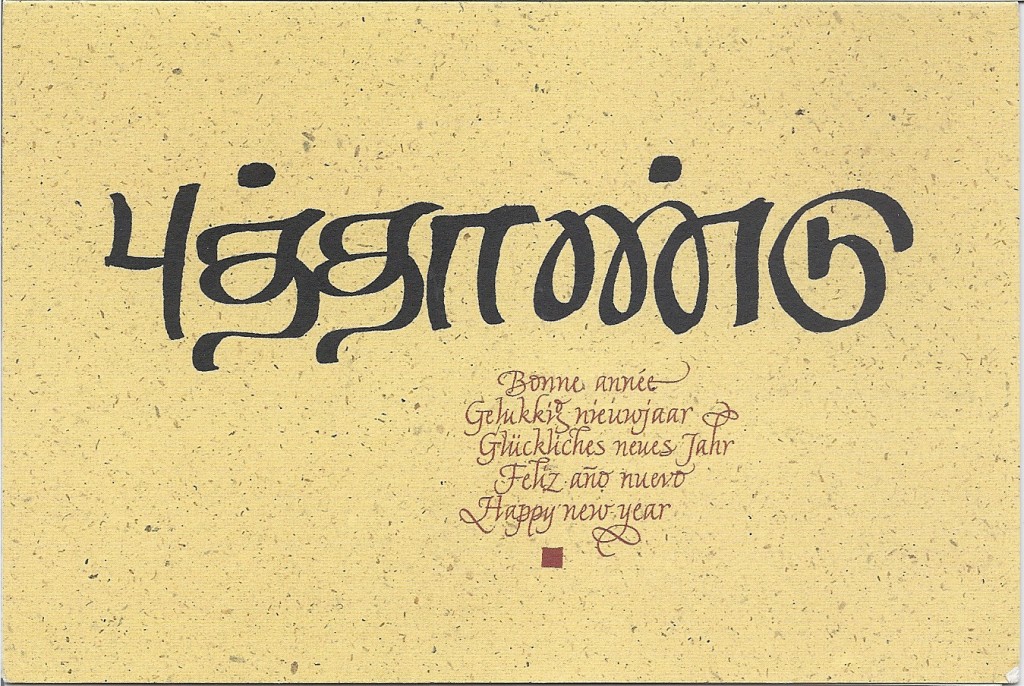 புத்தாண்டு
Bonne année
Gelukkig nieuwjaar
Glückliches neues Jahr
Feliz año nuevo
Happy new year